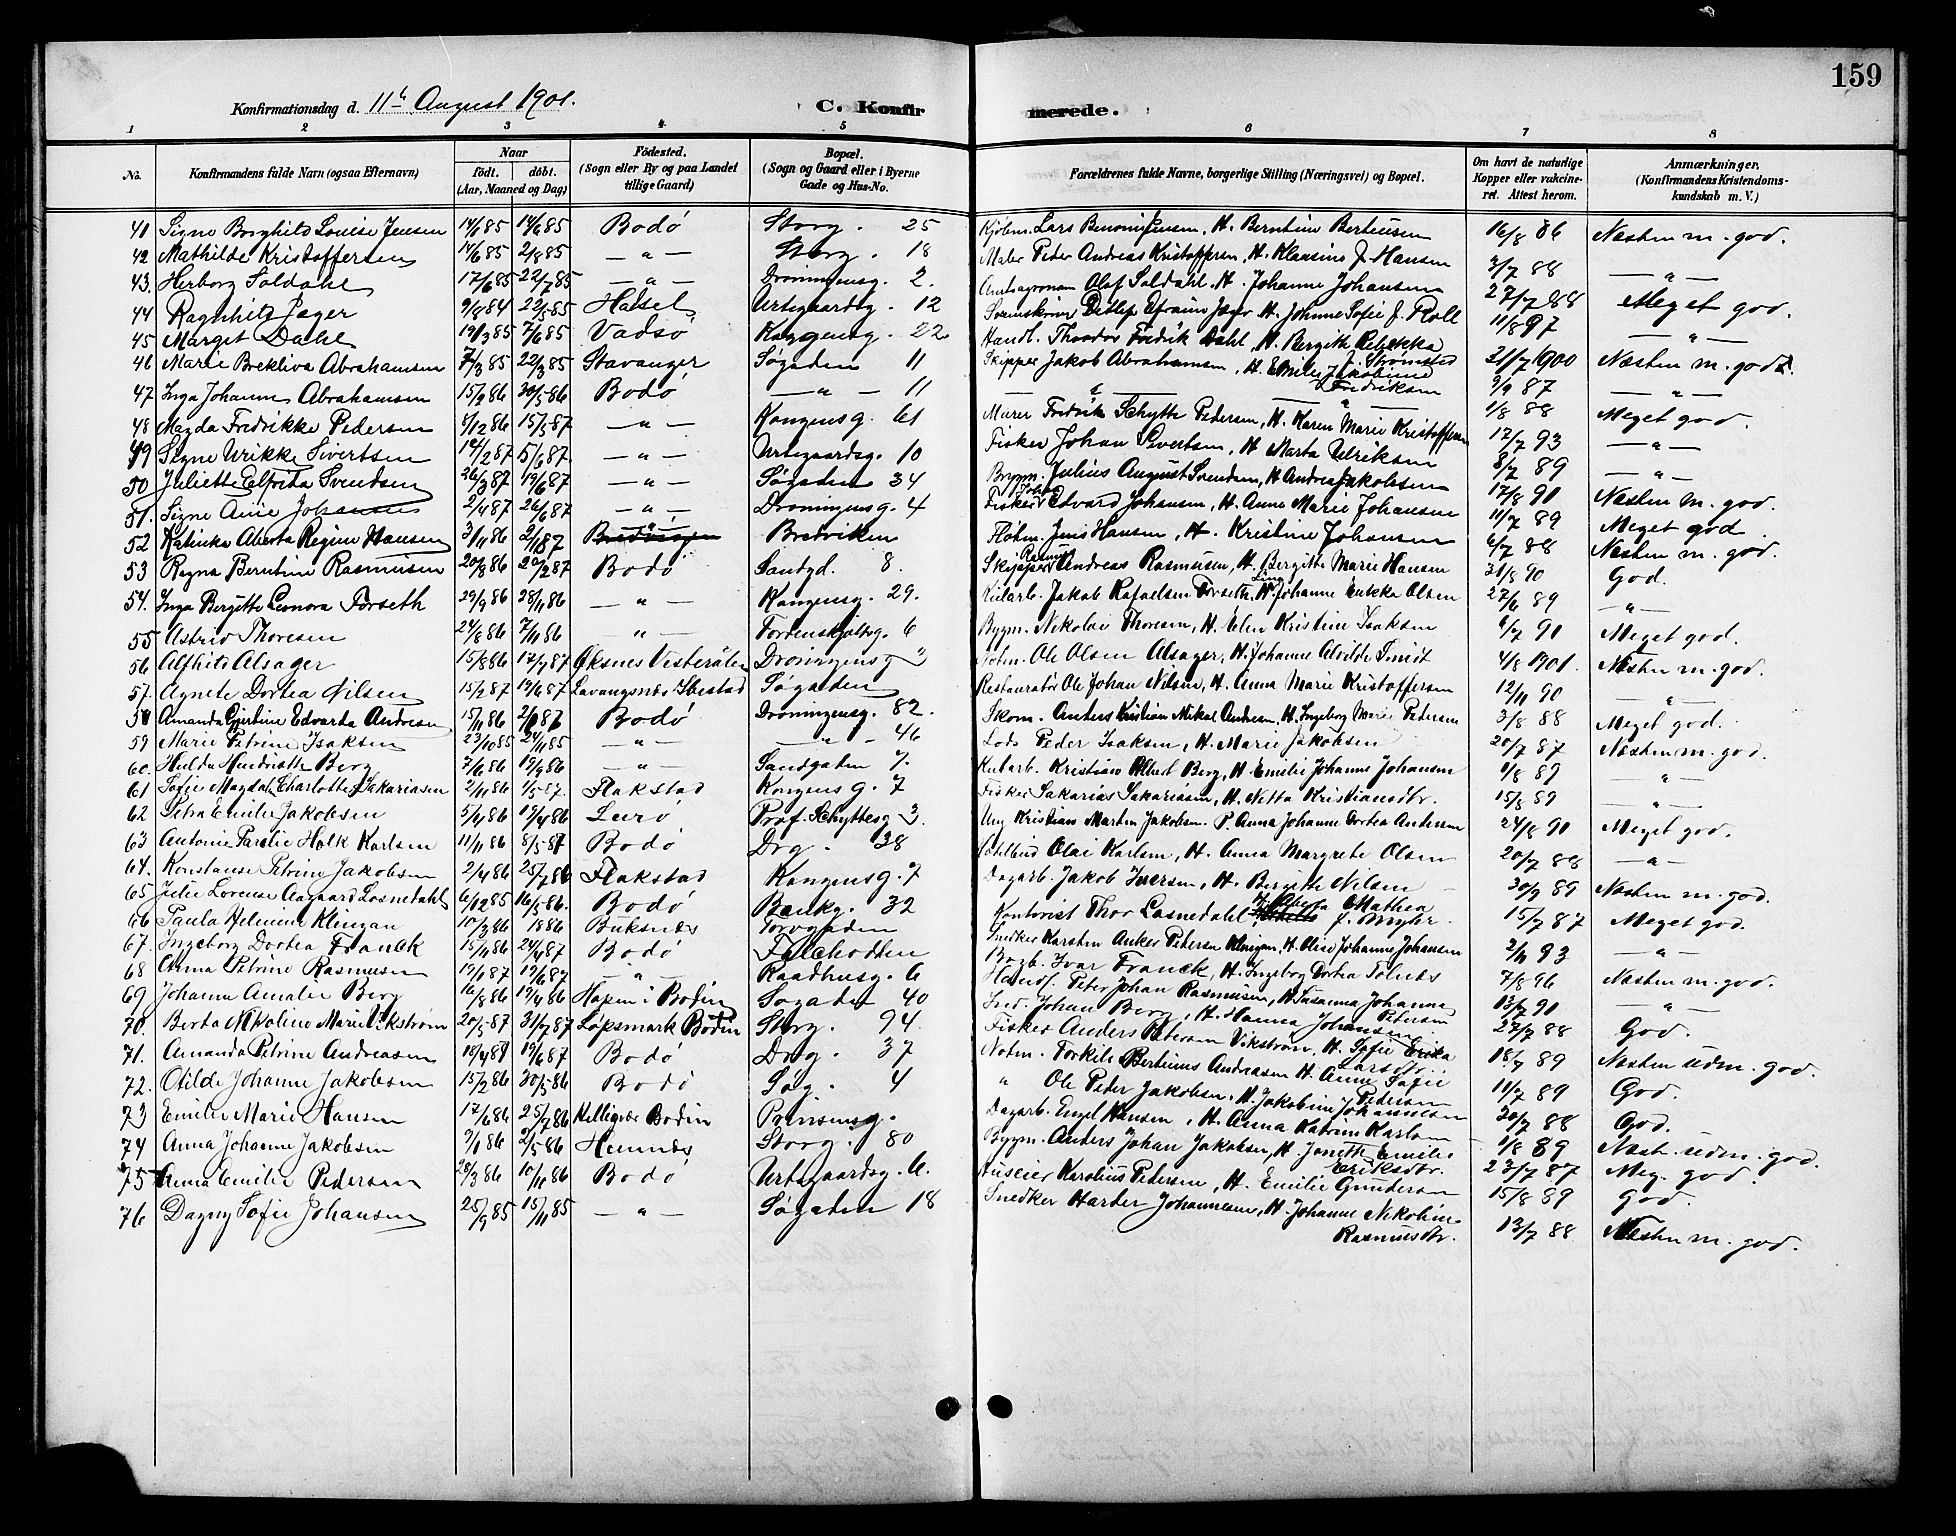 159
Konfirmationsdag d. 11te August 1901. C. Konfir merede.
1 2 3 4 5 6 7 8
No. Konfirmandens fulde Navn (ogsaa Efternavn) Naar født. døbt. (Aar, Maaned og Dag) Födested. (Sogn eller By og paa Landet tillige Gaard) Bopæl. (Sogn og Gaard eller i Byerne Gade og Hus-No. Forældrenes fulde Navne, borgerlige Stilling (Næringsvei) og Bopæl. Om havt de naturlige Kopper eller vakcineret. Attest herom. Anmærkninger. (Konfirmandens Kristendomskundskab m. V.)
41 Signe Borghild Louise Jensen 14/6 85 14/6 85 Bodø Storg. 25 Kjøbm. Lars Benoni Jensen, H. Berntine Berteusen 16/8 86 Næsten m. god.
42 Mathilde Kristoffersen 14/6 85 2/8 85 — " — Storg. 18 Maler Peder Andreas Kristoffersen, H. Klausine J. Hansen 3/7 88 — " —
43. Herborg Soldahl 17/6 85 22/7 85 — " — Dronningensg. 2. Amtsagronom Olaf Soldahl. H. Johanne Johansen 27/7 88 Meget god.
44 Ragnhild Jager 9/8 84 22/5 85 Hassel Urtegaardsg. 12 Sorenskriver Detlef Efraim Jager H. Johnne Sofie J. Roll 11/8 97 — " —
45 Marget Dahl 19/3 85 7/6 85 Vadsø Kongensg. 22 Handl. Theodor Fredrik Dahl, H. Bergith Rebekka J. Strømsted 21/7 1900 Næsten m. god.
46 Marie Brektiva Abrahamsen 7/3 85 22/3 85 Stavanger Søgaden 11 Skipper Jakob Abrahamsen, H. Emilie Jakobine Fredriksen 9/9 87 — " —
47 Inga Johanne Abrahamsen 15/9 86 30/5 86 Bodø — " — 11 — " — " — 1/8 88 Meget god.
48 Magda Fredrikke Pedersen 8/12 86 15/5 87 — " — Kongensg. 61 Murer Fredrik Schytte Pedersen, H. Karen Marie Kristoffersen 12/7 93 — " —
49 Signe Urikke Sivertsen 14/2 87 5/6 87 — " — Urtegaardsg. 10 Fisker Johan Sivertsen, H Marta Ulriksen 8/7 89 — " —
50 Juliette Elfrida Svendsen 26/3 87 19/6 87 — " — Søgaden 34 Brygm. Julius August Svendsen, H. Andrea Jakobsen 17/8 90 Næsten m. god.
51. Signe Anie Johansen 2/4 87 26/6 87 — " — Dronningensg. 4 Fisker Edvard Johansen, H. Anne Marie Johansen 11/7 89 Meget god
52 Katinka Alberta Regine Hansen 3/11 86 2/1 87 Bredviken Flotm. Jens Hansen, H. Kristine Johansen 6/7 88 Næsten m. god.
53 Ragna Berntine Rasmusen 20/8 86 20/2 87 Bodø Sandgd. 8. Skipper Rasmus Andreas Rasmusen, H. Bergitte Marie Hansen 31/8 90 God.
54. Inga Bergitte Leonora Forseth 29/9 86 28/11 86 — " — Kongensg. 29. Kularb. Jakob Rafaelsen Forseth, H. Johanne Olsen 27/6 89 — " —
55 Astrid Thoresen 24/8 86 7/11 86 " — Tordenskjoldsg. 6 Bygm. Nikolai Thoresen, H. Elen Kristine Isaksen 6/7 90 Meget god.
56 Alfhild Alsager 15/8 86 17/7 87 Øksnes Vesterålen Dronningensg 3 Notm. Ole Olsen Alsager, H. Johanne Alvilde Smidt 4/8 1901. Næsten m. god.
57. Agnete Dortea Nilsen 15/2 87 19/6 87 Lavangsnes Ibestad Søgaden Restauratør Ole Johan Nilsen, H. Anna Marie Kristoffersen 12/11 90 — " —
58 Amanda Gjertine Edvarda Andresen 15/11 86 2/1 87 Bodø Dronningensg. 82. Skom. Anders Kristian Mikal Andresen, H. Ingeborg Marie Pedersen 3/8 88 Meget god.
59 Marie Petrine Isaksen 23/10 85 24/11 85 — " — — " — 46 Lods Peder Isaksen, H. Marie Jakobsen 20/7 87 Næsten m. god.
60. Hulda Hendriette Berg 7/6 86 19/9 86 — " — Sandgaden 7. Kularb. Kristian Albert Berg, H. Emilie Johanne Johansen 1/8 89 — " —
61 Sofie Magdal. Charlotte Sakariasen 2/11 86 1/5 87. Flakstad Kongensg. 7 Fisker Sakarias Sakariasen, H. Netta Kristiansdtr. 15/8 89 — " —
62 Petra Emilie Jakobsen 5/4 86 13/4 86 Lurø Prof. Schyttesg 3. Ung Kristian Martin Jakobsen. P. Anna Johanne Dortea Andersen 24/8 90 Meget god.
63 Antonie Parelie Holk Karlsen 11/11 86 8/5 87 Bodø Drg. 38 Olai Karlsen, H. Anna Margrete Olsen 20/7 88 — " —
64. Konstanse Petrine Jakobsen 2/4 86 25/7 86 Flakstad Kongensg. 7 Dagarb. Jakob Iversen, H. Bergitte Nilsen 30/9 89 Næsten m. god.
65 Julie Lorense Aagaard Losnedahl 6/12 85 16/5 86. Bodø Bankg. 32 Kontorist Thor Losnedahl Mathea f. Myhr. 15/7 87 Meget god.
66 Paula Helmine Klingan 10/3 86 1886 Buksnes Torvgaden Snedker Karsten Anker Petersen Klingan, H. Olise Johanne Johansen 2/11 93 — " —
67. Ingeborg Dortea Franck 15/11 86 24/4 87 Bodø Falchodten Bogb. Ivar Franck, H. Ingeborg Dortea Tolnes 7/8 96 Næsten m. god.
68 Anna Petrine Rasmusen 19/1 87 19/6 87 — " — Raadhusg. 6 Handl. Peter Johan Rasmusen, H. Susanna Johanna Petersen 13/7 90 — " —
69 Johanna Amalie Berg 16/8 86 19/4 86 Hopen i Bodin Søgaden 40 Sned. Johan Berg, H. Hanna Johansen 27/7 88 God.
70. Berta Nikoline Marie Vikstrøm 20/5 87 31/7 87 Løpsmark Bodin Storg. 94. Fisker Anders Petersen Vikstrøm, H. Sofie Erika Larsdtr. 18/7 89 Næsten udm. god.
71. Amanda Petrine Andreasen 18/4 87 19/6 87 Bodø Drg. 37 Notm. Torkild Bertinus Andreasen H. Anne Sofie Pedersen 11/7 89 God.
72. Otilde Johanne Jakobsen 15/2 86 30/5 86 Bodø Søg. 4 " Ole Peter Jakobsen, H. Jakobine Johannesen 30/7 88 God.
73 Emilie Marie Hansen 17/6 86 25/7 86 Helligvær Bodin Prinsensg. Dagarb. Engel Hansen, H. Anna Katrine Karlsen 1/8 89 Næst. udm. god.
74 Anna Johanne Jakobsen 9/1 86 2/5 86 Hemnes Storg. 80 Bygm. Anders Johan Jakobsen, H. Jonette Emilie Eriksdtr. 23/7 87 Meg. god.
75 Anna Emilie Pedersen 28/3 86 10/11 86 Bodø Urtegaardsg. 6. Huseier Karolius Pedersen, H. Emilie Gundersen 15/8 89 God.
76 Dagny Sofie Johansen 25/9 85 15/11 85 — " — Søgaden 18 Snedker Harder Johannesen, H. Johanne Nikoline Rasmusdtr. 13/7 88 Næsten m. god.